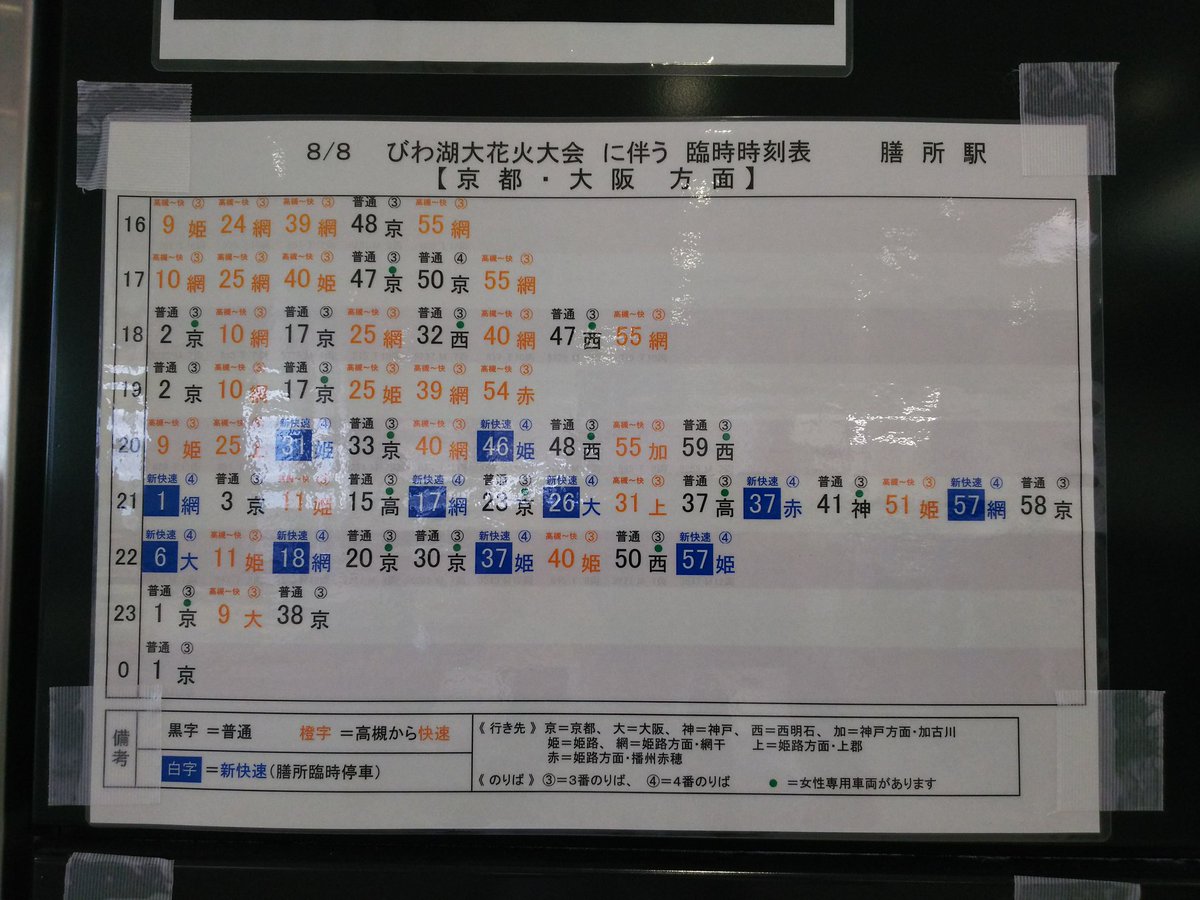 8/8 びわ湖大花火大会 に伴う 臨時時刻表 膳所駅
【京都・大阪 方面】
高槻～快 ③ 高槻～快 ③ 高槻～快 ③ 普通 ③ 高槻～快 ③
16 9 姫 24 網 39 網 48 京 55 網
高槻～快 ③ 高槻～快 ③ 高槻～快 ③ 普通 ③ 普通 ④ 高槻～快 ③
17 10 網 25 網 40 姫 47 京 50 京 55 網
普通 ③ 高槻～快 ③ 普通 ③ 高槻～快 ③ 普通 ③ 高槻～快 ③ 普通 ③ 高槻～快 ③
18 2 京 10 網 17 京 25 網 32 西 40 網 47 西 55 網
普通 ③ 高槻～快 ③ 普通 ③ 高槻～快 ③ 高槻～快 ③ 高槻～快 ③
19 2 京 10 網 17 京 25 姫 39 網 54 赤
高槻～快 ③ 高槻～快 ③ 新快速 ④ 普通 ③ 高槻～快 ③ 新快速 ④ 普通 ③ 高槻～快 ③ 普通 ③
20 9 姫 25 上 31 姫 33 京 40 網 46 姫 48 西 55 加 59 西
新快速 ④ 普通 ③ 高槻～快 ③ 普通 ③ 新快速 ④ 普通 ③ 新快速 ④ 高槻～快 ③ 普通 ③ 新快速 ④ 普通 ③ 高槻～快 ③ 新快速 ④ 普通 ③
21 1 網 3 京 11 姫 15 高 17 網 23 京 26 大 31 上 37 高 37 赤 41 神 51 姫 57 網 58 京
新快速 ④ 高槻～快 ③ 新快速 ④ 普通 ③ 普通 ③ 新快速 ④ 高槻～快 ③ 普通 ③ 新快速 ④
22 6 大 11 姫 18 網 20 京 30 京 37 姫 40 姫 50 西 57 姫
普通 ③ 高槻～快 ③ 普通 ③
23 1 京 9 大 38 京
普通 ③
0 1 京
備考
黒字 ＝普通 橙字 ＝高槻から快速
白字 ＝新快速(膳所臨時停車)
《 行き先 》 京＝京都、 大＝大阪、 神＝神戸、 西＝西明石、 加＝神戸方面・加古川
姫＝姫路、 網＝姫路方面・網干 上＝姫路方面・上郡
赤＝姫路方面・播州赤穂
《 のりば 》 ③＝３番のりば、 ④＝４番のりば ●＝女性専用車両があります